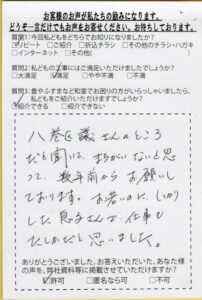 お客様のお声が私たちの励みになります。
どうぞ一言だけでもお声をお寄せください。お待ちしております。
質問1:今回私どもをどちらでお知りになりましたか?
☑リピート □ご紹介 □折込チラシ □その他のチラシ・ハガキ
□インターネット □その他(
質問2:私どもの工事にはご満足いただけましたでしょうか?
□大満足 ☑満足 □やや不満 □不満
質問3:畳やふすまなど和室でお困りの方がいらっしゃいましたら、
私どもをご紹介いただけますでしょうか?
☑紹介できる □紹介できない
議さんのところ
だと聞いて、まちがいないと思
って、数年前からお願いし
ております。お若いのに、しっかり
した息子さんで、仕事も
たしかだと思いました。
ありがとうございました。お答えいただいた、あなた様
の声を、弊社資料等に掲載させていただけますか?
☑許可 □匿名なら可 □不可